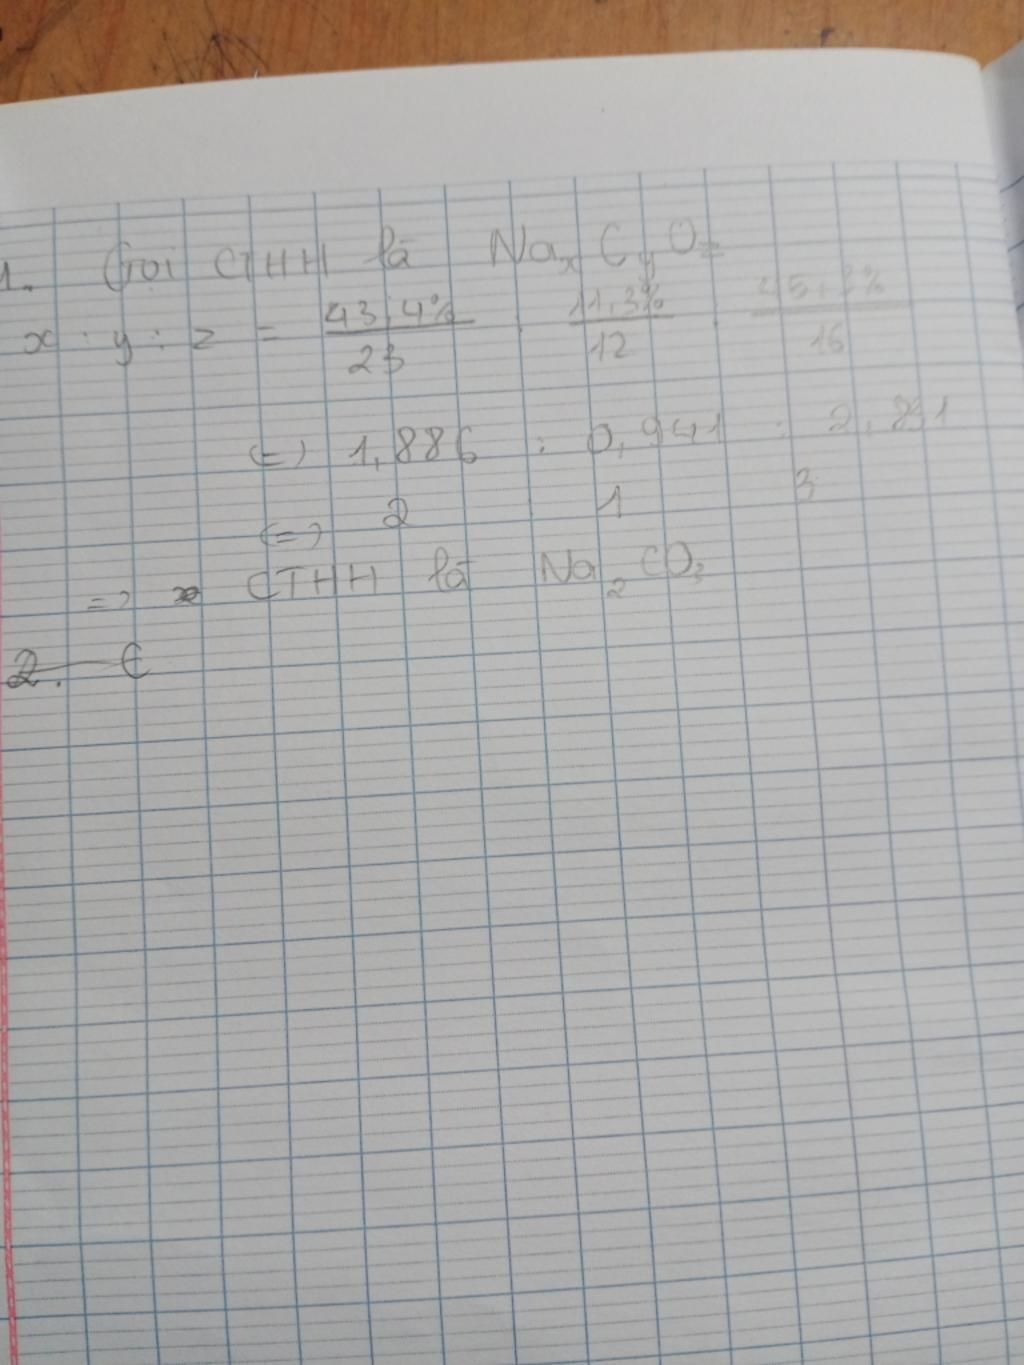 1. Gọi CTHH là NaxCyOz
x : y : z = 43,4% / 23 : 11,3% / 12 : 45,3% / 16
(=) 1,886 : 0,941 : 2,831
(=) 2 1 3
=> CTHH là Na2CO3
2. C